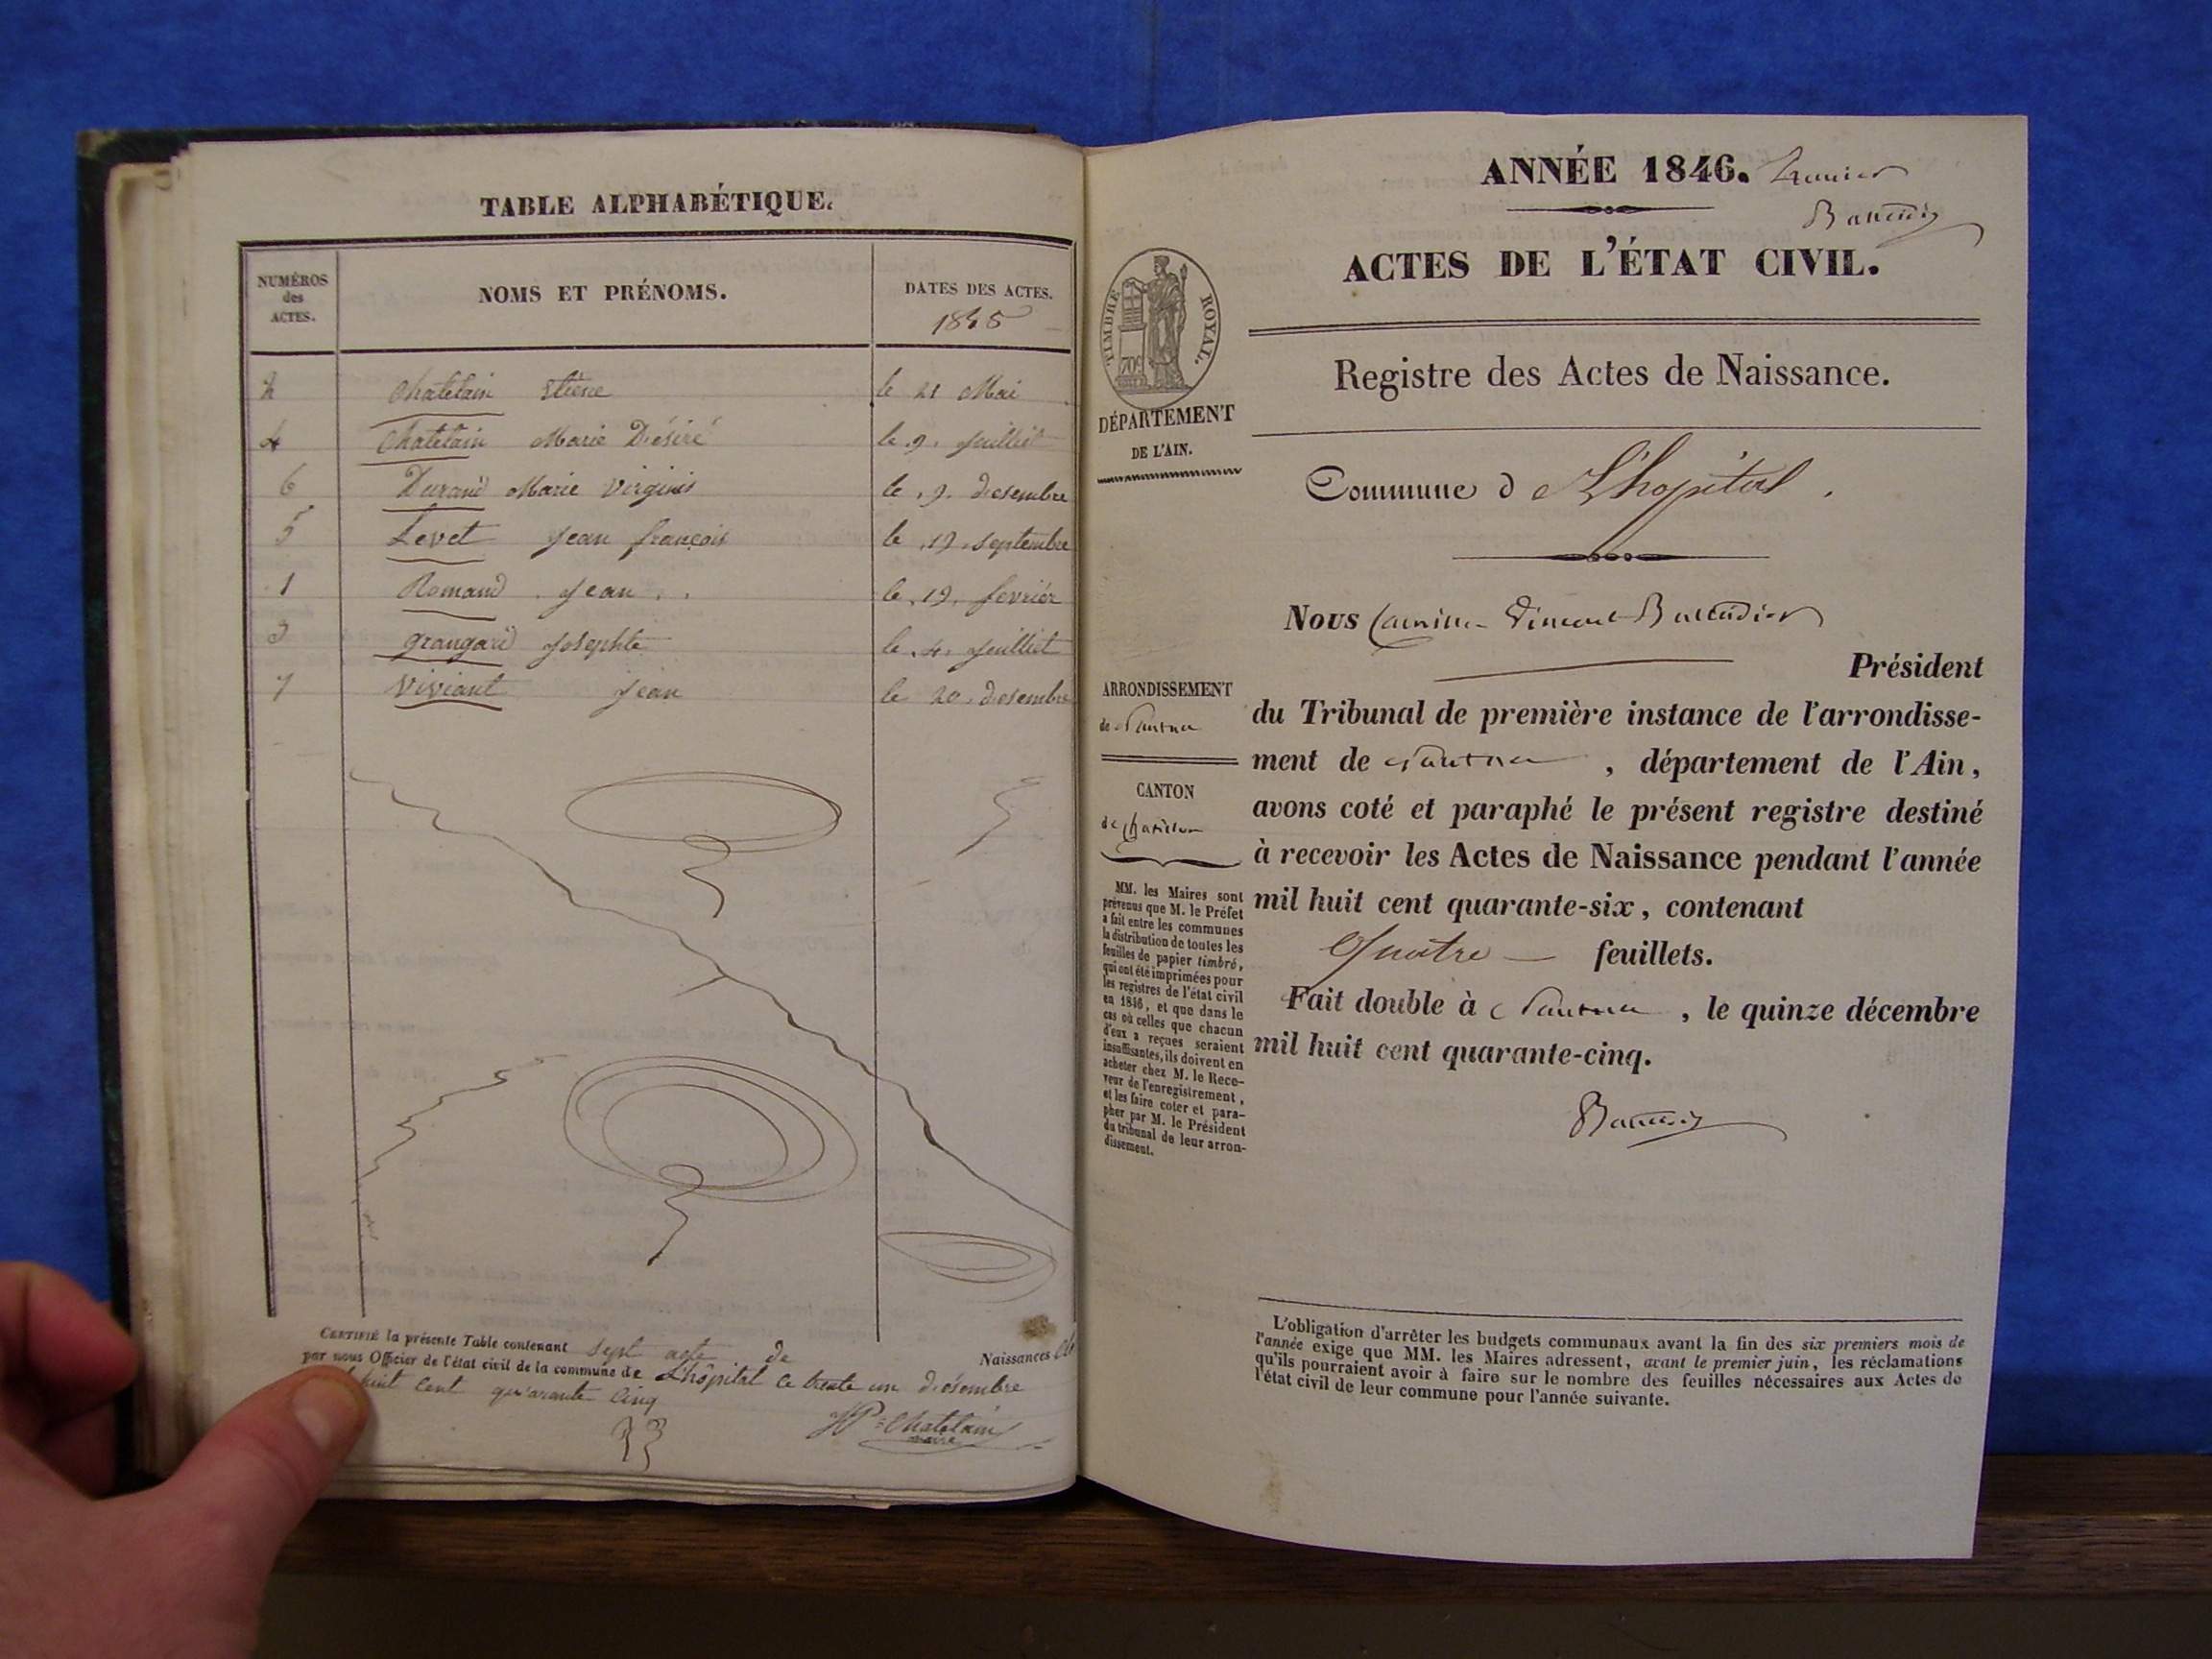 TABLE ALPHABÉTIQUE.
NUMÉROS des ACTES. NOMS ET PRÉNOMS. DATES DES ACTES.
1845
2 Chatelain Etiene le 21 Mai
4 Chatelain Marie Désiré le 9. Juilliet
6 Durand Marie Virginis le . 9. desembre
5 Levet Jean françois le .19. septembre
1 Romand . Jean . . le . 19. fevriér
3 grangard Josephte le . 4. Juilliet
7 Viviant Jean le 20. desembre
CERTIFIÉ la présente Table contenant sept acte de Naissances
par nous Officier de l'état civil de la commune de L'hôpital ce trente un désembre
huit cent quarante cinq
Chatelain
maire
ANNÉE 1846. Premier
ACTES DE L'ÉTAT CIVIL.
TIMBRE ROYAL.
70c
Registre des Actes de Naissance.
DÉPARTEMENT
DE L'AIN.
Commune d L'hopital .
Nous
Président
du Tribunal de première instance de l'arrondisse-
ment de Nantua , département de l'Ain,
avons coté et paraphé le présent registre destiné
à recevoir les Actes de Naissance pendant l'année
mil huit cent quarante-six, contenant
Quatre feuillets.
Fait double à Nantua , le quinze décembre
mil huit cent quarante-cinq.
ARRONDISSEMENT
de Nantua
CANTON
de Chatillon
MM. les Maires sont
prévenus que M. le Préfet
a fait entre les communes
la distribution de toutes les
feuilles de papier timbré,
qui ont été imprimées pour
les registres de l'état civil
en 1846, et que dans le
cas où celles que chacun
d'eux a reçues seraient
insuffisantes, ils doivent en
acheter chez M. le Rece-
veur de l'enregistrement,
et les faire coter et para-
pher par M. le Président
du tribunal de leur arron-
dissement.
L'obligation d'arrêter les budgets communaux avant la fin des six premiers mois de
l'année exige que MM. les Maires adressent, avant le premier juin, les réclamations
qu'ils pourraient avoir à faire sur le nombre des feuilles nécessaires aux Actes de
l'état civil de leur commune pour l'année suivante.